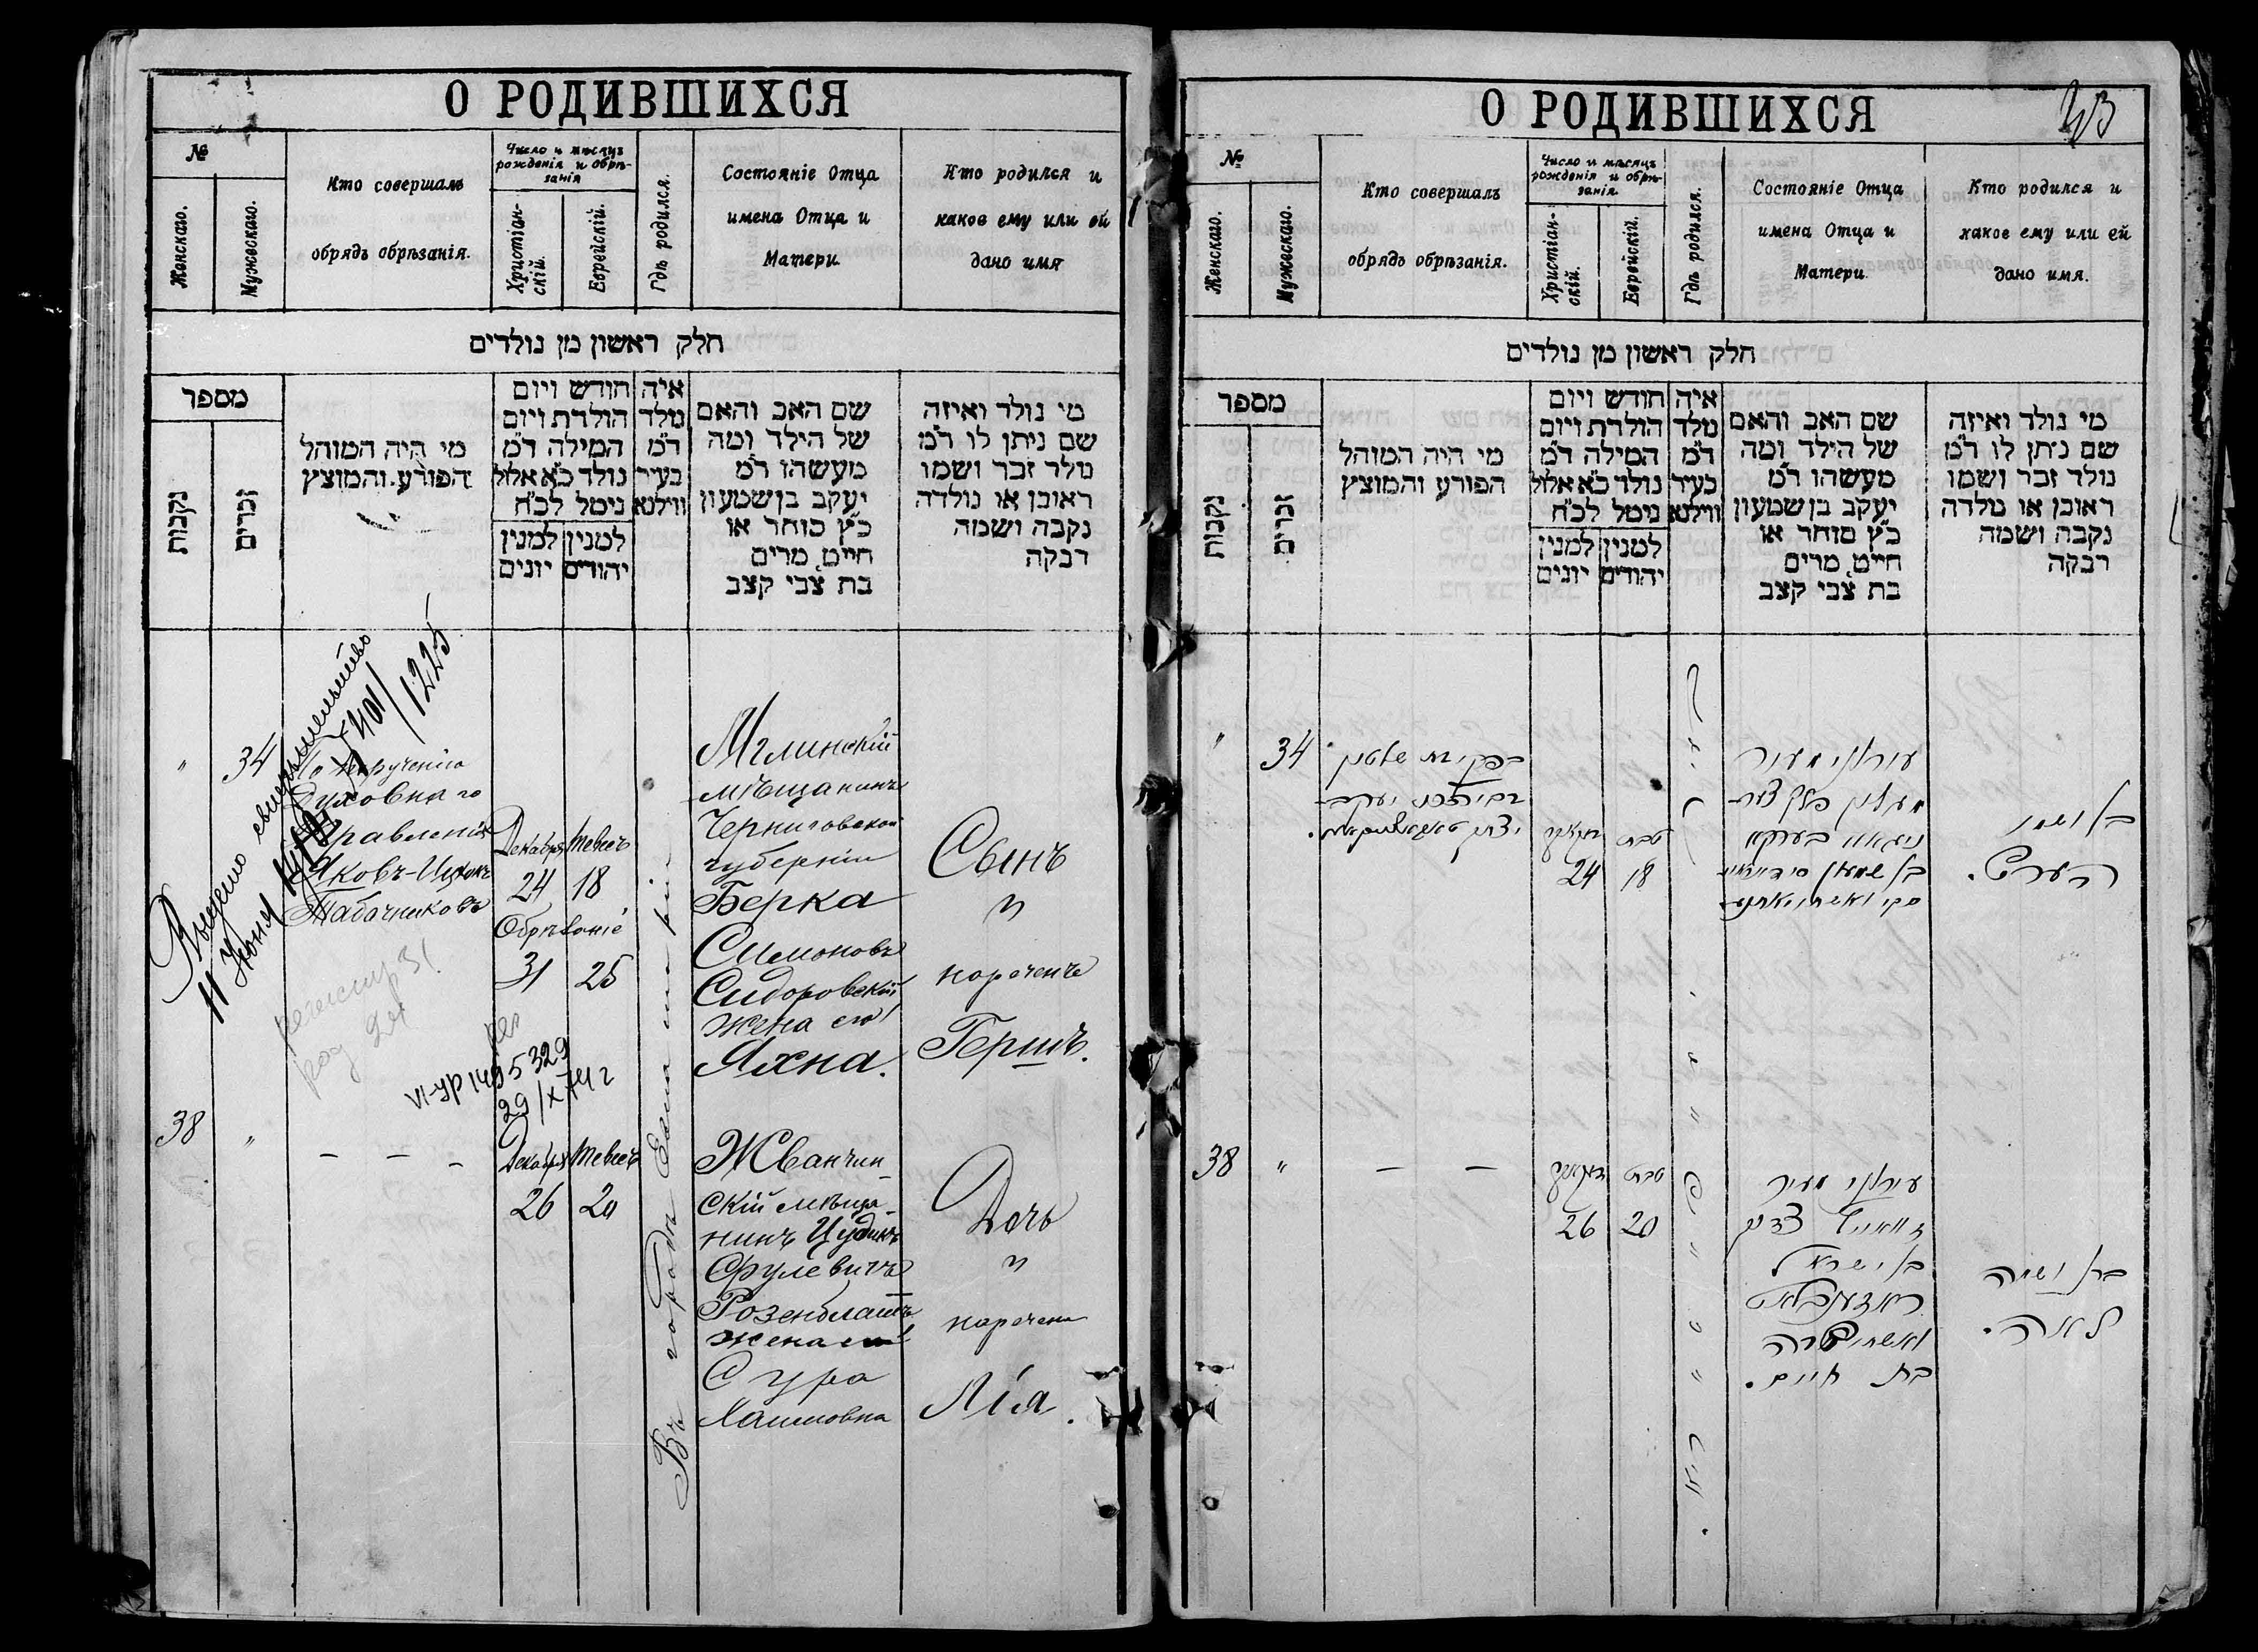 О РОДИВШИХСЯ
№
Женскаго.
Мужескаго.
Кто совершалъ
обрядъ обрѣзанія.
Число и мѣсяцъ
рожденія и обрѣ-
занія
Христіан-
скій.
Еврейскій.
Гдѣ родился.
Состояніе Отца
имена Отца и
Матери
Кто родился и
какое ему или ей
дано имя
חלק ראשון מן נולדים
מספר
נקבות
זכרים
מי היה המוהל
הפורע והמוצץ
חודש ויום
הולדת ויום
המילה ד״מ
נולד כ״א אלול
נימל לכ״ח
למנין למנין
יהודים יונים
איה
נולד
ד״מ
בעיר
ווילנא
שם האב והאם
של הילד ומה
מעשהו ד״מ
יעקב בן שמעון
כ״ץ סוחר או
חייט מרים
בת צבי קצב
מי נולד ואיזה
שם ניתן לו ד״מ
נולד זכר ושמו
ראובן או נולדה
נקבה ושמה
רבקה
Выдано свидѣтельство
11 Іюня
/1225
" 34
По порученію
Духовнаго
Правленія
Яковъ-Ицхокъ
Табачниковъ
Декабря Тевесъ
24 18
Обрѣзаніе
31 25
Въ городѣ
Мглинскій
мѣщанинъ
Черниговской
губерніи
Берка
Симоновъ
Сидоровскій
жена его
Яхна.
Сынъ
"
нареченъ
Гершъ.
29/X
38 "
— — —
Декабря Тевесъ
26 20
Жванчин-
скій мѣща-
нинъ
Срулевичъ
Розенблатъ
жена его
Сура
Хаимовна
Дочь
"
наречена
Лія.
О РОДИВШИХСЯ
№
Женскаго.
Мужескаго.
Кто совершалъ
обрядъ обрѣзанія.
Число и мѣсяцъ
рожденія и обрѣ-
занія
Христіан-
скій.
Еврейскій.
Гдѣ родился.
Состояніе Отца
имена Отца и
Матери
Кто родился и
какое ему или ей
дано имя.
חלק ראשון מן נולדים
מספר
נקבות
זכרים
מי היה המוהל
הפורע והמוצץ
חודש ויום
הולדת ויום
המילה ד״מ
נולד כ״א אלול
נימל לכ״ח
למנין למנין
יהודים יונים
איה
נולד
ד״מ
בעיר
ווילנא
שם האב והאם
של הילד ומה
מעשהו ד״מ
יעקב בן שמעון
כ״ץ סוחר או
חייט מרים
בת צבי קצב
מי נולד ואיזה
שם ניתן לו ד״מ
נולד זכר ושמו
ראובן או נולדה
נקבה ושמה
רבקה
" 34
טבת
24 18
עירוני מעיר
בערקא
בן שמעון
בן ושמו
הערש.
38 "
— —
טבת
26 20
עירוני מעיר
בן ישראל
ראזענבלאט
ואשתו שרה
בת חיים.
בת ושמה
לאה.